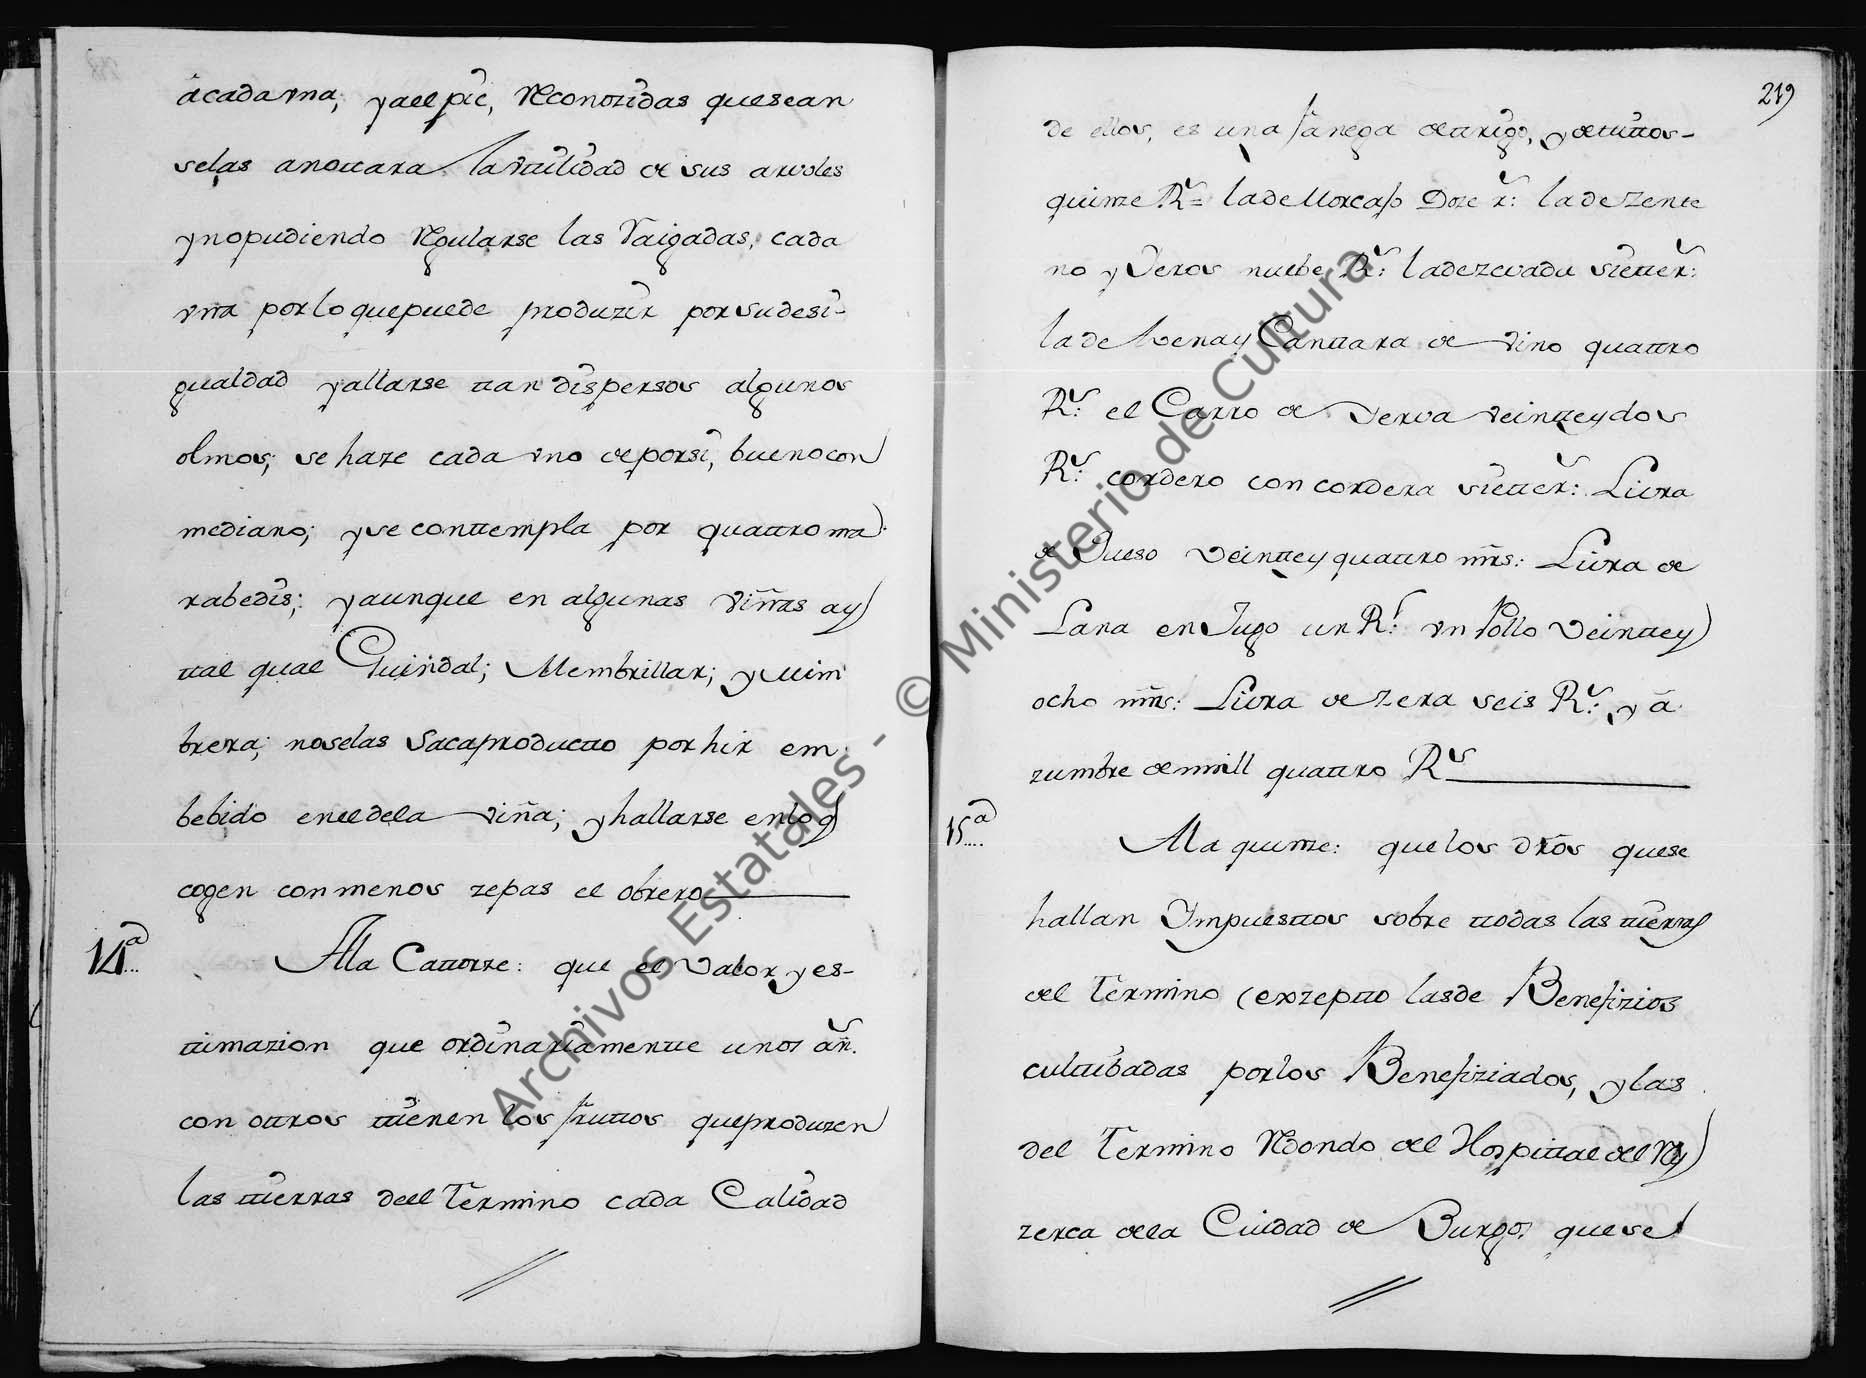 à cada vna; y a el pie, Recontizdas que sean
se las anottara la vttilidad de sus arvoles
y no pudiendo Regularse las Vaigadas, cada
vna por lo que puede produzir por su desi-
gualdad y allarse ttan dispersos algunos
olmos; se haze cada vno de por si, bueno con
mediano; y se conttempla por quattro ma
rabedis; y aunque en algunas viñas ay
ttal qual Guindal; Membrillar; y vim
brera; no se las Saca productto por hir em
bebido en el de la viña; y hallarse en lo q
cogen con menos zepas el obrero
14ª...
A la Cattorze: que el valor y es-
ttimazion que ordinariamentte unos añ.s
con ottros ttienen los fruttos que produzen
las ttierras deel Termino cada Calidad
219
de ellos, es una fanega de ttrigo, y de tittos-
quinze R.s la de Morcajo Doze r.s: la de Zente
no y Yeros nuebe R.s: la de zevada siette r.s:
la de Avena y Canttara de vino quattro
R.s: el Carro de Yerva veintte y dos
R.s: cordero con cordera siette r.s: Livra
de Queso Veintte y quattro mrs: Livra de
Lana en Jugo un R.l: vn Pollo Veintte y
ocho mrs: Livra de Zera seis R.s: y a
zumbre de miell quattro R.s
15ª....
A la quinze: que los dros que se
hallan Ympuesttos sobre ttodas las ttierras
del Termino (exzeptto las de Benefizios
culttibadas por los Benefiziados, y las
del Termino Redondo del Hospittal del Rey
zerca de la Ciudad de Burgos que se
© Ministerio de Cultura
Archivos Estatales -